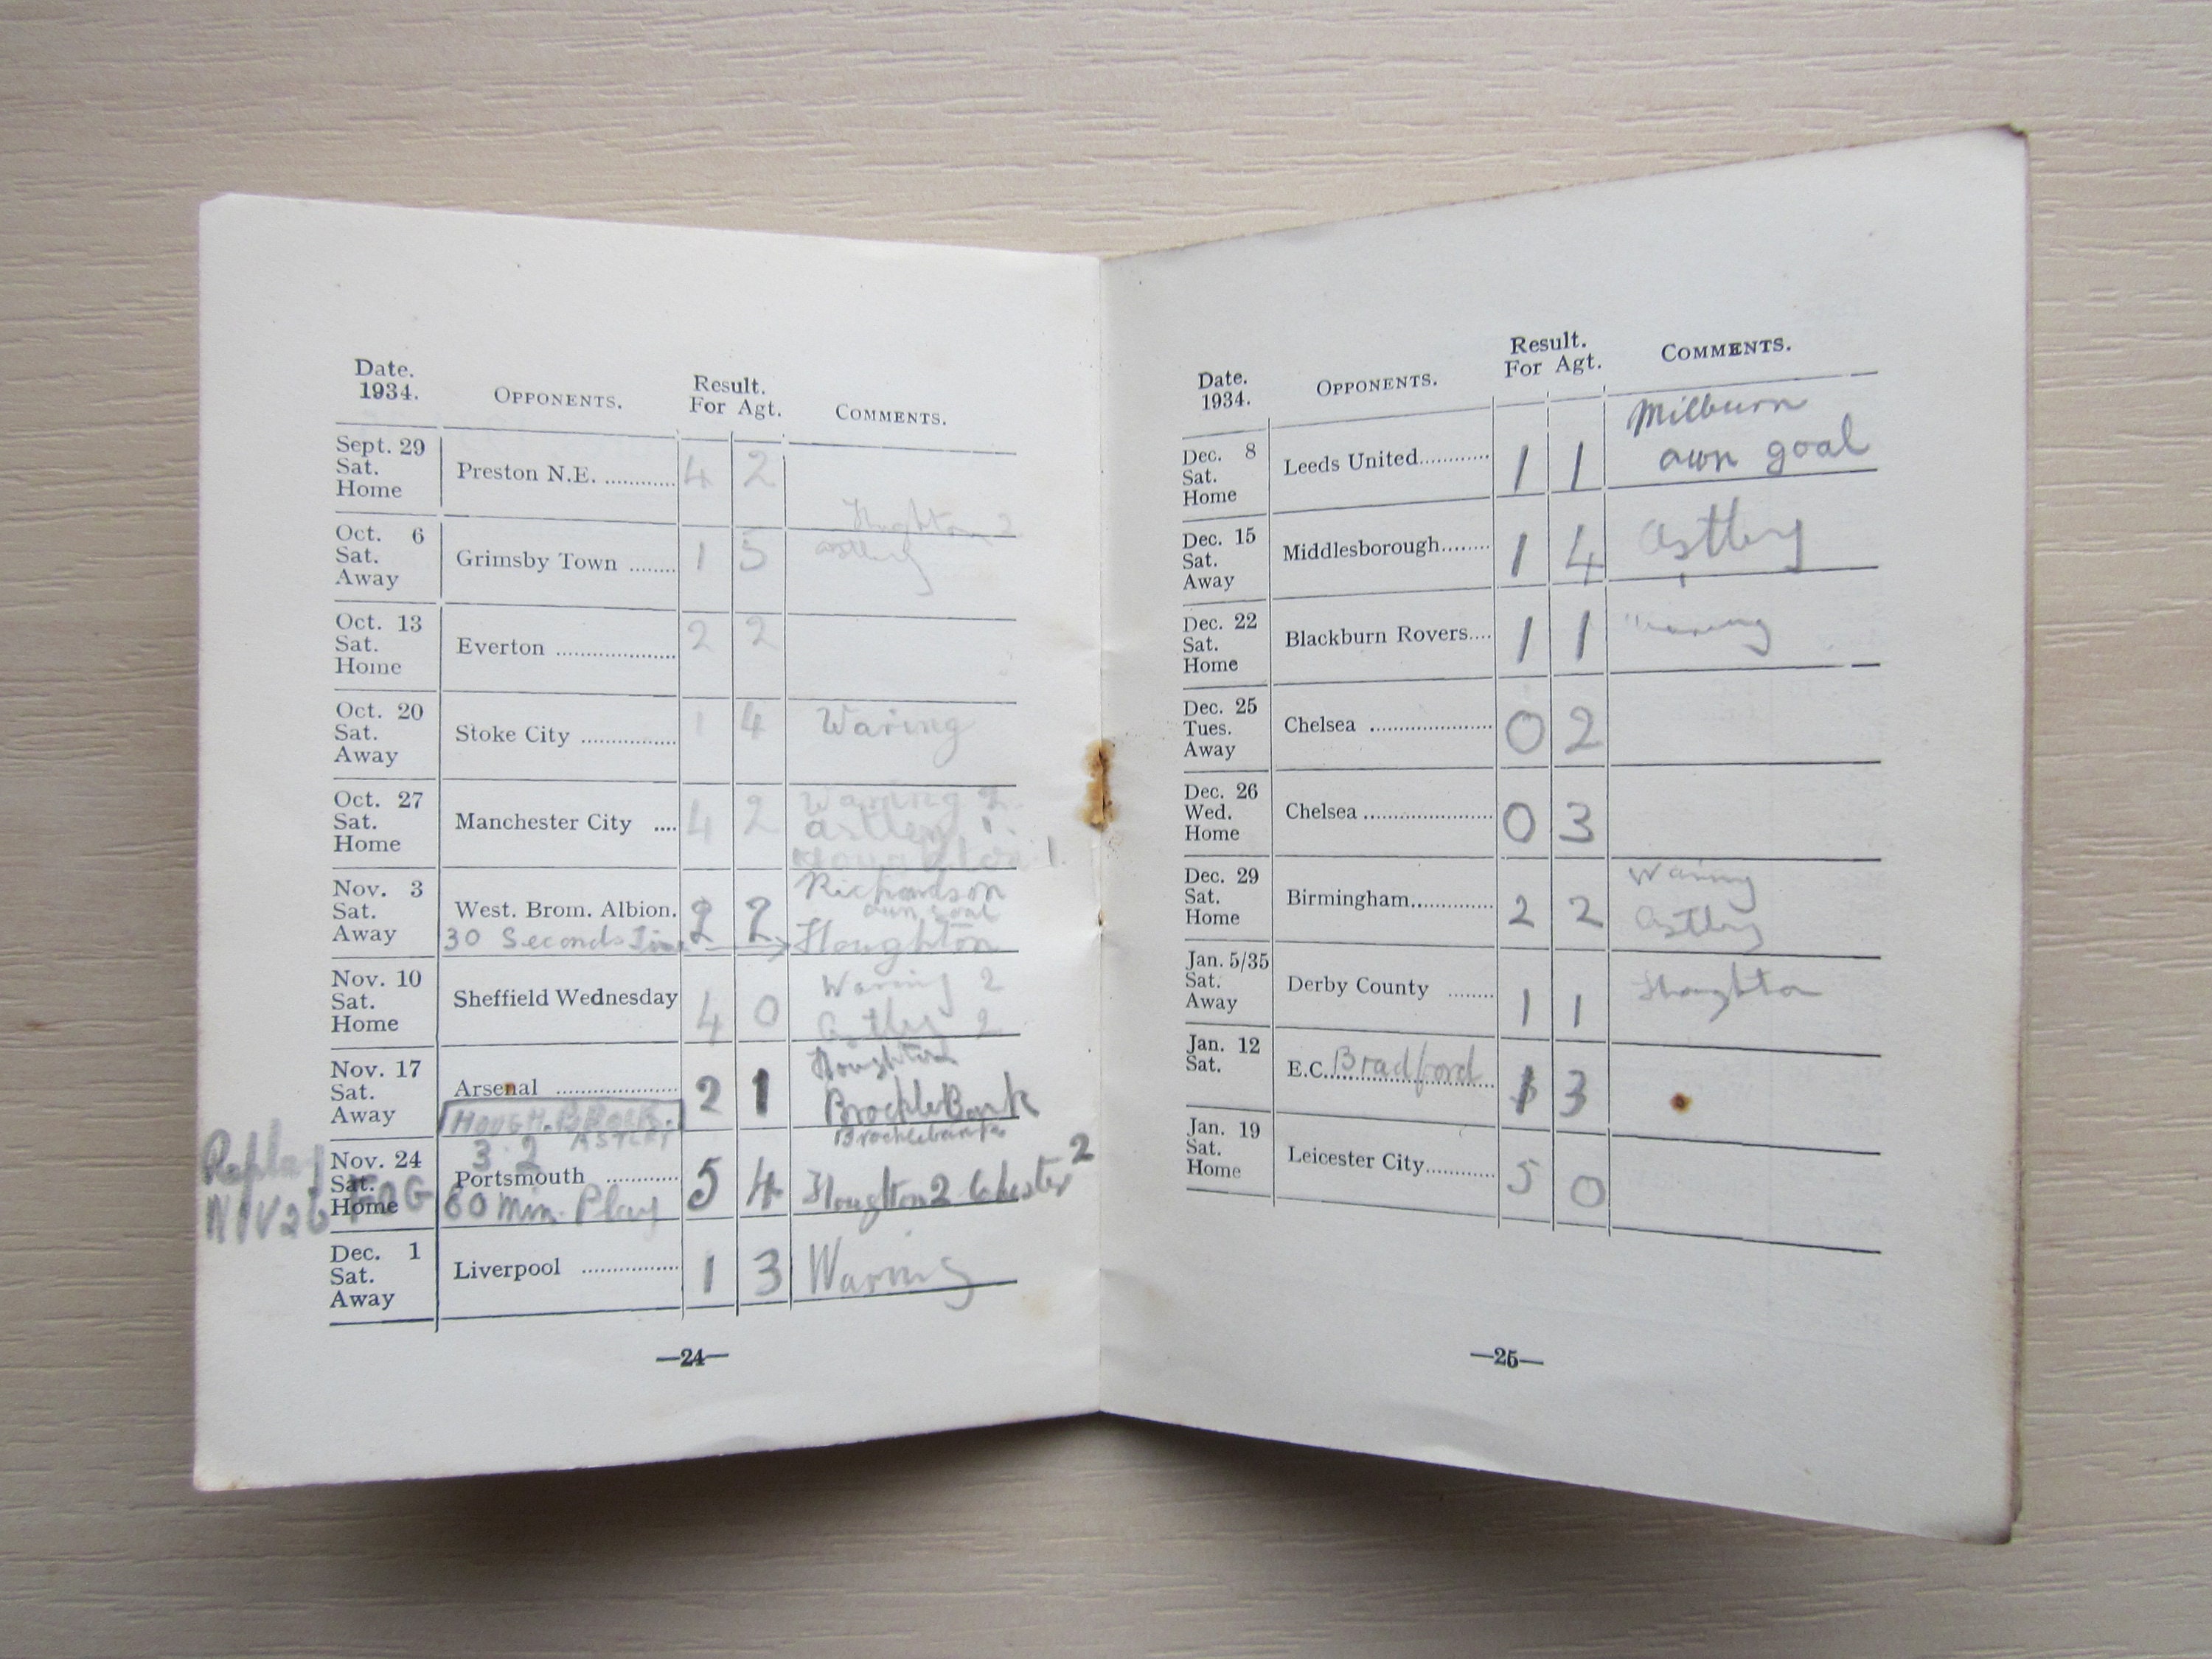 Date.
1934.
OPPONENTS.
Result.
For Agt.
COMMENTS.
Sept. 29
Sat.
Home
Preston N.E. ............ 4 2
Houghton 2
Oct. 6
Sat.
Away
Grimsby Town ........ 1 5 Astley
Oct. 13
Sat.
Home
Everton .................... 2 2
Oct. 20
Sat.
Away
Stoke City ................ 1 4 Waring
Oct. 27
Sat.
Home
Manchester City .... 4 2 Waring 2.
Astley 1.
Houghton 1.
Nov. 3
Sat.
Away
West. Brom. Albion. 2 2 Richardson
own goal
30 Seconds Time Houghton
Nov. 10
Sat.
Home
Sheffield Wednesday 4 0 Waring 2
Astley 2
Nov. 17
Sat.
Away
Arsenal .................... 2 1 Houghton
BrockleBank
HOUGH. BROCK.
ASTLEY
3.2
Brocklebank
Replay
NOV 26
Nov. 24
Sat.
Home
FOG
Portsmouth ............ 5 4 Houghton 2 2
60 Min. Play
Dec. 1
Sat.
Away
Liverpool ................ 1 3 Waring
—24—
Date.
1934.
OPPONENTS.
Result.
For Agt.
COMMENTS.
Dec. 8
Sat.
Home
Leeds United............ 1 1 Milburn
own goal
Dec. 15
Sat.
Away
Middlesborough........ 1 4 Astley
Dec. 22
Sat.
Home
Blackburn Rovers.... 1 1 Waring
Dec. 25
Tues.
Away
Chelsea .................... 0 2
Dec. 26
Wed.
Home
Chelsea .................... 0 3
Dec. 29
Sat.
Home
Birmingham.............. 2 2 Waring
Astley
Jan. 5/35
Sat.
Away
Derby County ........ 1 1 Houghton
Jan. 12
Sat.
E.C. Bradford 1 3
Jan. 19
Sat.
Home
Leicester City............ 5 0
—25—